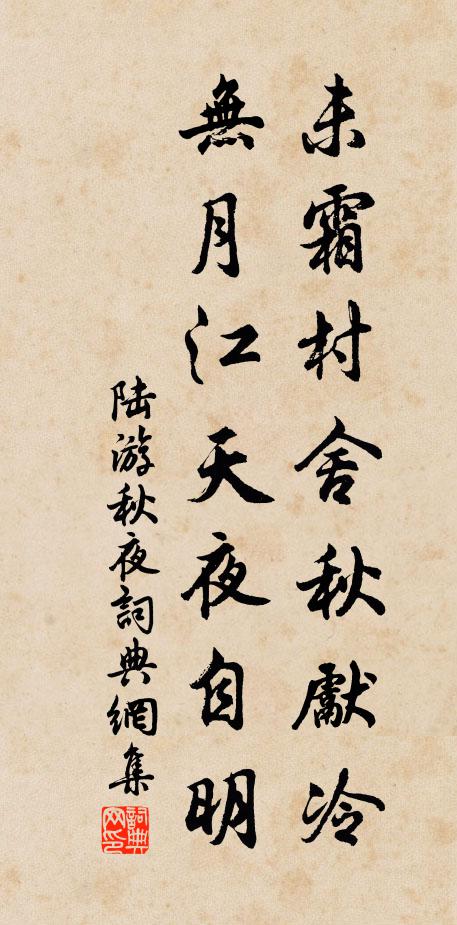 未霜村舍秋獻冷
無月江天夜自明
陆游秋夜詞典網集
詞典网印